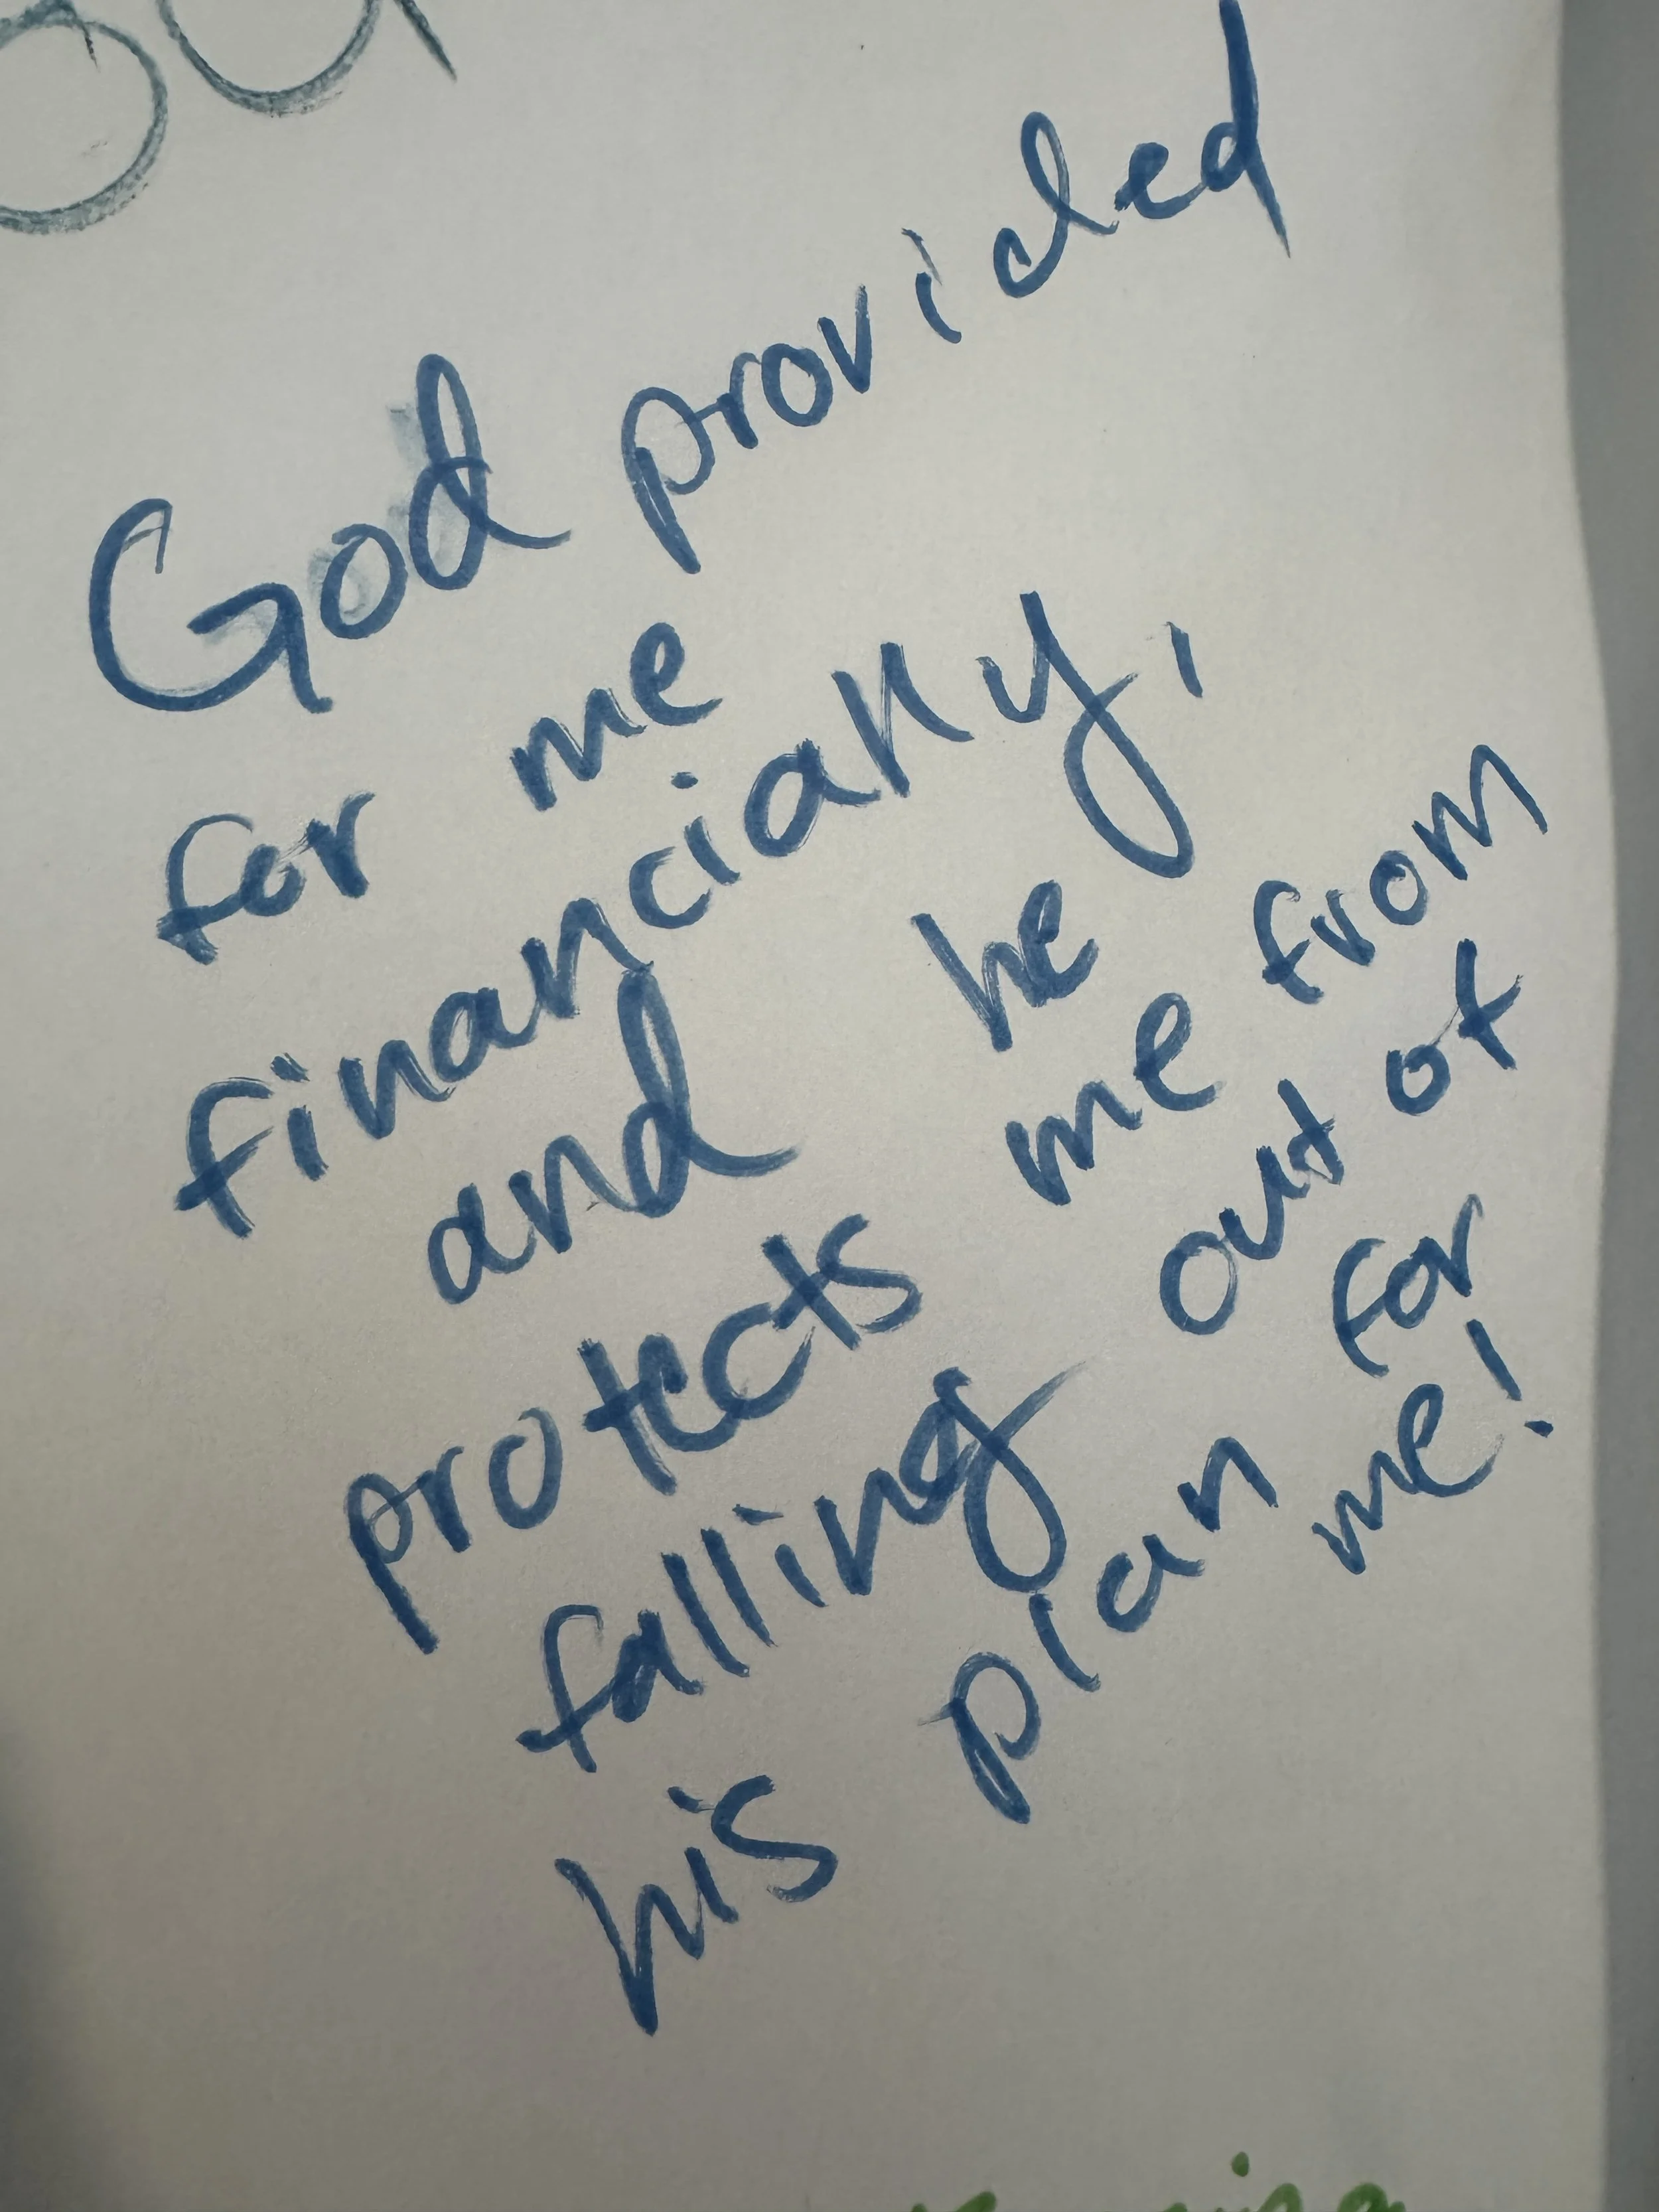 God provided
for me
financially,
and he
protects me from
falling out of
his plan for
me!